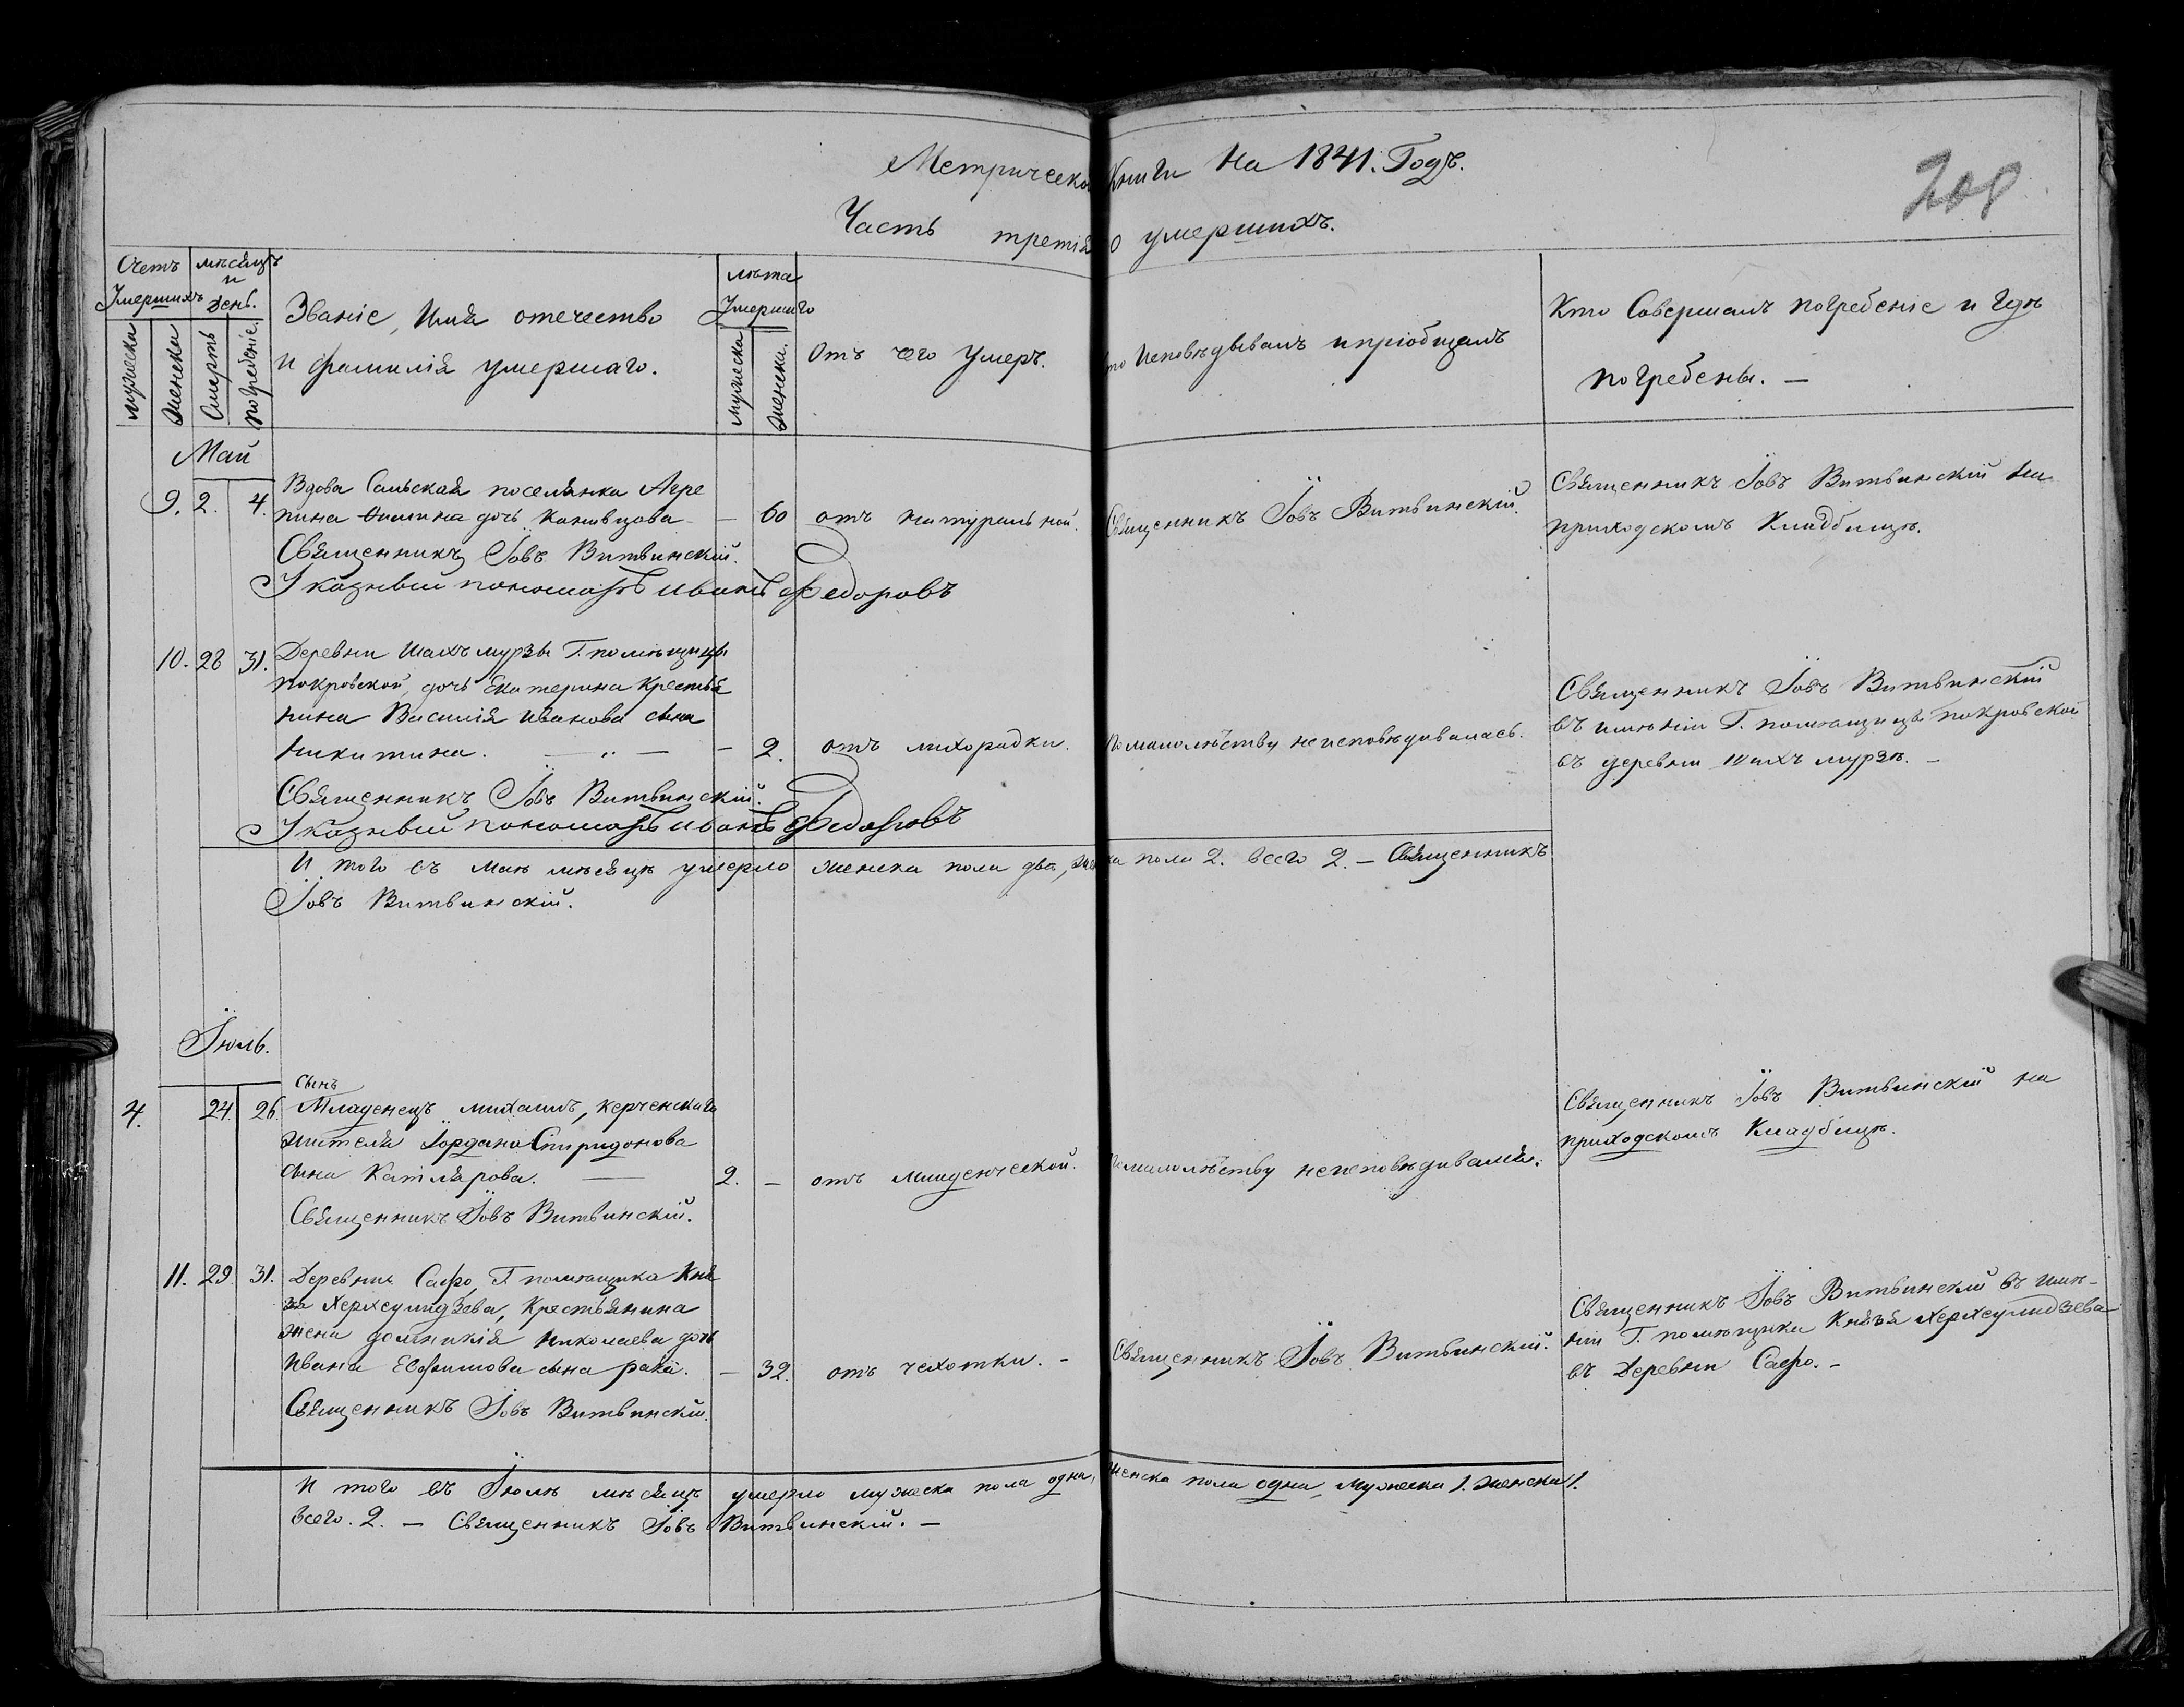 Метрической Книги на 1841. Годъ.
208
Часть третія о умершихъ.
Счетъ Умершихъ
мѣсяцъ и день.
Званіе, Имя отечество и фамилія умершаго.
лѣта Умершаго
Отъ чего Умеръ.
Кто Исповѣдывалъ и пріобщалъ
Кто Совершалъ погребеніе и гдѣ погребены. —
мужеска
женска
Смерть
погребеніе.
мужеска
женска.
Май
9. 2. 4. Вдова Сельская поселянка Агре
пина дочь — 60 отъ натуральной. Священникъ Іовъ Витвинскій. Священникъ Іовъ Витвинскій на
приходскомъ Кладбищѣ.
Священникъ Іовъ Витвинскій.
Указный пономарь Иванъ Федоровъ
10. 28 31. Деревни Шихъ мурзы Г. помѣщицы
покровской, дочь Екатерина Крестья
нина Василія Иванова сына
Никитина. — „ — — 2. отъ лихорадки. По малолѣтству неисповѣдывалась.
Священникъ Іовъ Витвинскій
въ имѣніи Г. помѣщицы покровской
въ деревни Шихъ мурзѣ. —
Священникъ Іовъ Витвинскій.
Указный пономарь Иванъ Федоровъ
И того въ Маѣ мѣсяцѣ умерло женска пола два, женска пола 2. всего 2. — Священникъ
Іовъ Витвинскій.
Іюль.
сынъ
4. 24. 26. Младенецъ михаилъ, керченскаго
жителя Іордана Спиридонова
сына Катлярова. — 2. — отъ младенческой. По малолѣтству неисповѣдывался.
Священникъ Іовъ Витвинскій на
приходскомъ Кладбищѣ.
Священникъ Іовъ Витвинскій.
11. 29. 31. Деревни Сафо, Г. помѣщика Кня
зя Херхеулидзева, Крестьянина
жена Николаева дочь
Ивана Евфимова сына рака. — 32. отъ чахотки. — Священникъ Іовъ Витвинскій.
Священникъ Іовъ Витвинскій въ имѣ-
ніи Г. помѣщика Князя Херхеулидзева
въ Деревни Сафо. —
Священникъ Іовъ Витвинскій.
И того въ Іюлѣ мѣсяцѣ умерло мужеска пола одна, женска пола одна, Мужеска 1. женска 1.
Всего. 2. — Священникъ Іовъ Витвинскій. —